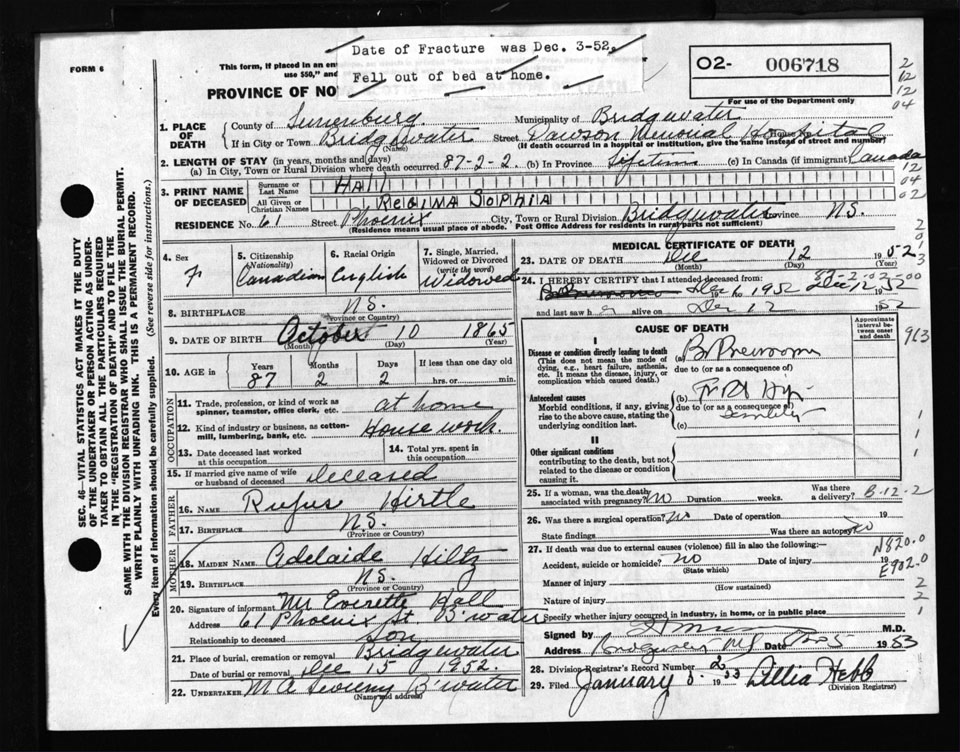 Date of Fracture was Dec. 3-52.
Fell out of bed at home.
FORM 6
This form, if placed in an en
use $50," and
PROVINCE OF NO
O2- 006718
For use of the Department only
2
12
12
04
1. PLACE OF DEATH
County of Lunenburg Municipality of Bridgewater
If in City or Town Bridgewater Street Dawson Memorial Hospital House No.
(Name) (If death occurred in a hospital or institution, give the name instead of street and number)
2. LENGTH OF STAY (in years, months and days)
(a) In City, Town or Rural Division where death occurred 87-2-2. (b) In Province Lifetime (c) In Canada (if immigrant) Canada
12
04
02
3. PRINT NAME OF DECEASED
Surname or Last Name HALL
All Given or Christian Names REGINA SOPHIA
RESIDENCE No. 61 Street Phoenix City, Town or Rural Division Bridgewater Province N.S.
(Residence means usual place of abode. Post Office Address for residents in rural parts not sufficient)
SEC. 46—VITAL STATISTICS ACT MAKES IT THE DUTY
OF THE UNDERTAKER OR PERSON ACTING AS UNDER-
TAKER TO OBTAIN ALL THE PARTICULARS REQUIRED
IN THE "REGISTRATION OF DEATH" AND TO FILE THE
SAME WITH THE DIVISION REGISTRAR WHO SHALL ISSUE THE BURIAL PERMIT.
WRITE PLAINLY WITH UNFADING INK. THIS IS A PERMANENT RECORD.
Every item of information should be carefully supplied. (See reverse side for instructions.)
4. Sex F
5. Citizenship (Nationality) Canadian
6. Racial Origin English
7. Single, Married, Widowed or Divorced (write the word) Widowed
8. BIRTHPLACE N.S.
(Province or Country)
9. DATE OF BIRTH October 10 1865
(Month) (Day) (Year)
10. AGE in Years 87 Months 2 Days 2 If less than one day old
hrs. or min.
OCCUPATION
11. Trade, profession, or kind of work as
spinner, teamster, office clerk, etc. at home
12. Kind of industry or business, as cotton-
mill, lumbering, bank, etc. House work.
13. Date deceased last worked
at this occupation
14. Total yrs. spent in
this occupation
15. If married give name of wife
or husband of deceased deceased
FATHER
16. NAME Rufus Hirtle
17. BIRTHPLACE N.S.
(Province or Country)
MOTHER
18. MAIDEN NAME Adelaide Hiltz
19. BIRTHPLACE N.S.
(Province or Country)
20. Signature of informant Mr Everette Hall
Address 61 Phoenix St B'water
Relationship to deceased Son
21. Place of burial, cremation or removal Bridgewater
Date of burial or removal Dec 15 1952.
22. UNDERTAKER B'water
(Name and address)
MEDICAL CERTIFICATE OF DEATH
23. DATE OF DEATH Dec 12 1952
(Month) (Day) (Year)
87-2-02-00
24. I HEREBY CERTIFY that I attended deceased from:
Dec 1952 Dec 12 1952
and last saw h alive on Dec 12 1952
CAUSE OF DEATH
Approximate interval between onset and death
I
Disease or condition directly leading to death
(This does not mean the mode of
dying, e.g., heart failure, asthenia,
etc. It means the disease, injury, or
complication which caused death.)
(a)
due to (or as a consequence of)
Antecedent causes
Morbid conditions, if any, giving
rise to the above cause, stating the
underlying condition last.
(b)
due to (or as a consequence of)
(c)
II
Other significant conditions
contributing to the death, but not
related to the disease or condition
causing it.
913
1
1
1
25. If a woman, was the death
associated with pregnancy? no Duration weeks. Was there a delivery? B-12-2
26. Was there a surgical operation? no Date of operation 19
State findings Was there an autopsy? no
27. If death was due to external causes (violence) fill in also the following:—
N820.0
Accident, suicide or homicide? no Date of injury 19
(State which)
E902.0
Manner of injury
(How sustained)
Nature of injury
Specify whether injury occurred in industry, in home, or in public place
2
2
1
Signed by M.D.
Address Date 1953
28. Division Registrar's Record Number 2
29. Filed January 5. 1953 Lillia Hebb
(Division Registrar)